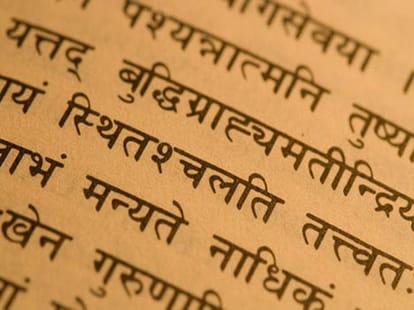 गसेवया ।
पश्यन्नात्मनि तुष्य
यत्तद् बुद्धिग्राह्यमतीन्द्रिय
यं स्थितश्चलति तत्त्वतः
लाभं मन्यते नाधिकं
खेन गुरुणा